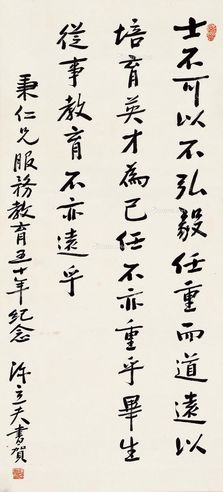 士不可以不弘毅任重而道遠以
培育英才為己任不亦重乎畢生
從事教育不亦遠乎
秉仁兄服務教育五十年紀念
陳立夫書賀